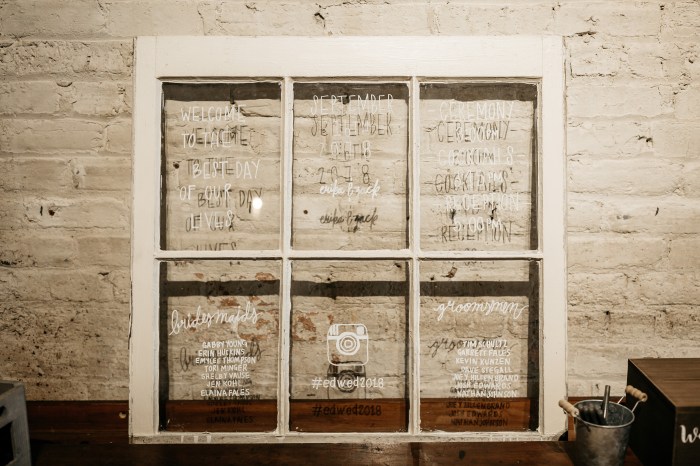 WELCOME
TO THE
BEST DAY
OF OUR
LIVES
SEPTEMBER
2018
erika & zack
CEREMONY
COCKTAILS
RECEPTION
bridesmaids
GABBY YOUNG
ERIN HUCKINS
EMYLEE THOMPSON
TORI MINGER
SHELBY VAUSE
JEN KOHL
ELAINA FALES
#edwed2018
groomsmen
TIM SCHULTZ
GARRETT FALES
KEVIN
DAVE
JOEY HILDENBRAND
JOSH EDWARDS
NATHAN JOHNSON